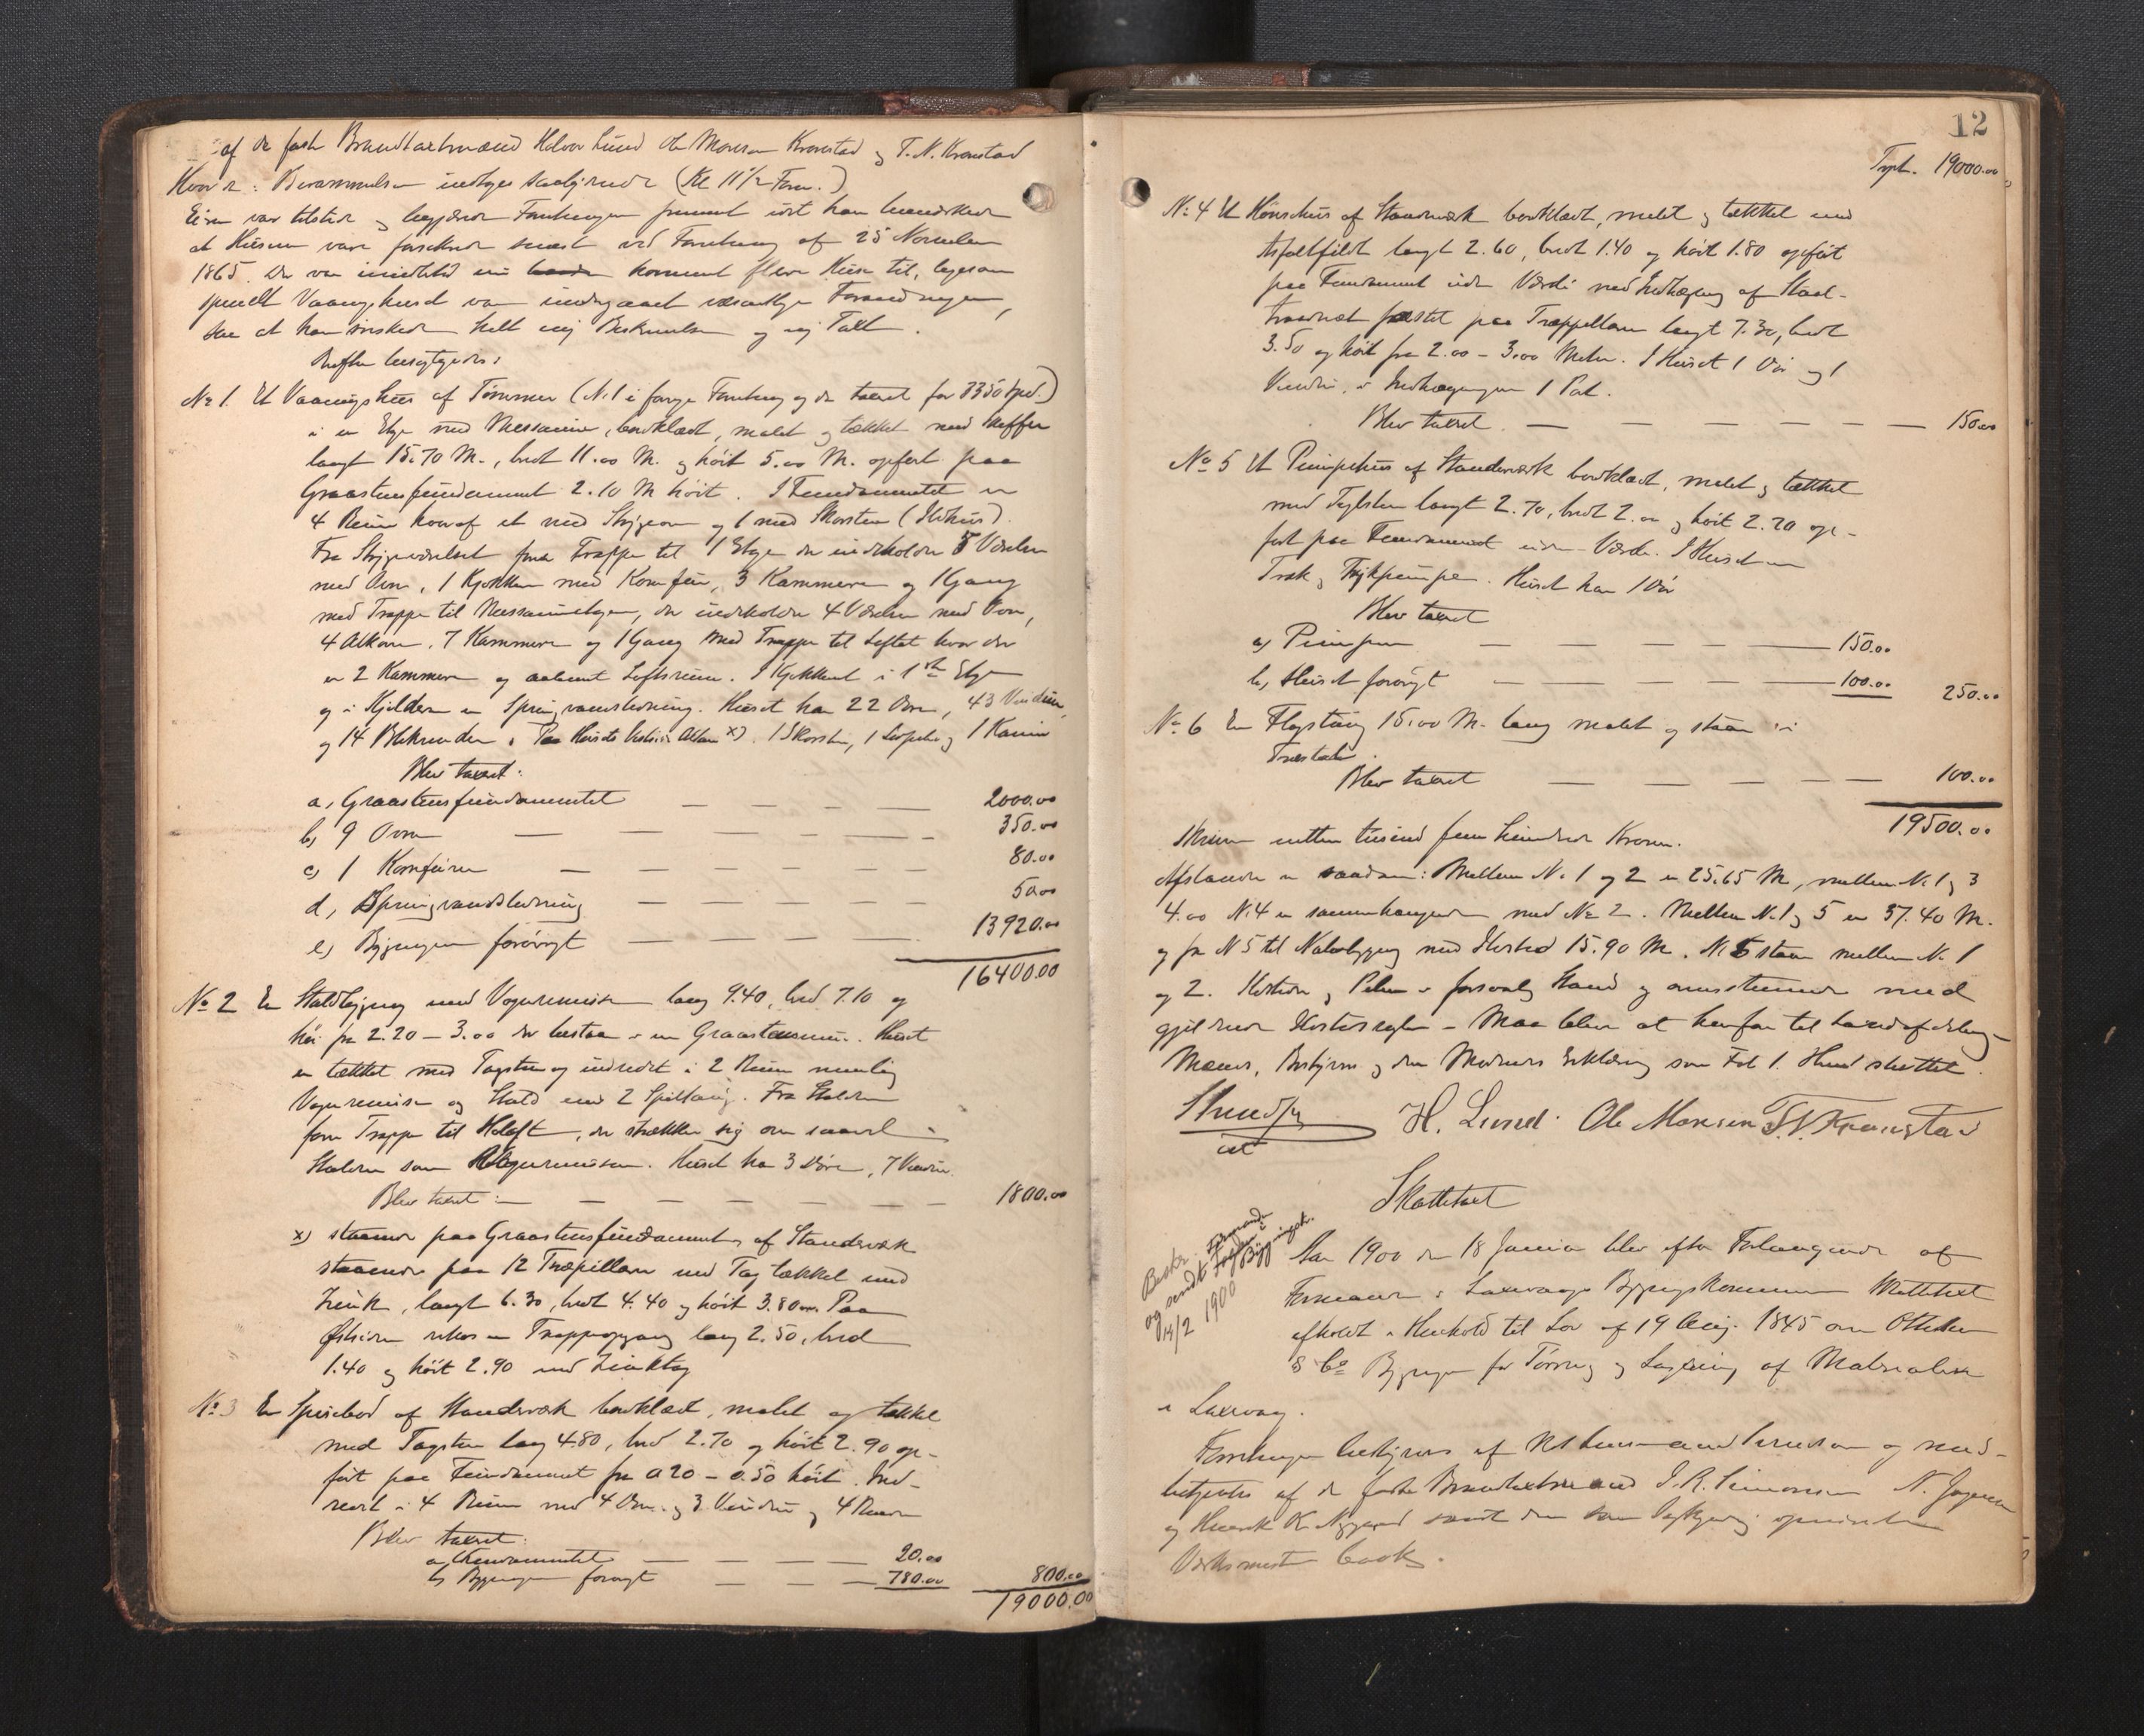 af de faste Brandtaxtmænd Halvor Lund Ole Monsen Kronstad og T. N. Kronstad
Hvorda: Berammelsen indtoges saalydende (Kl 11½ Form.)
Eieren var tilstede og begjærede Forretningen fremmet idet han bemærkede
at Husene vare forsikrede senest ved Forretning af 25 November
1865. Der var imidlertid nu kommet flere Huse til, ligesom
specielt Vaaningshuset var undergaaet væsentlige Forandringer,
saa at han ønskede helt ny Beskrivelse og ny Taxt.
Derefter besigtigedes:
No 1. Et Vaaningshus af Tømmer (No 1 i forrige Forretning og da taxeret for 3350 Spd.)
i en Etage med Messanin, bordklædt, malet og tækket med Skiffer
langt 15.70 M., bredt 11.00 M. og høit 5.00 M. opført paa
Graastensfundament 2.10 M høit. I Fundamentet er
4 Rum hvoraf et med Strygeovn og 1 med Skorsten (Ildhus).
Fra Strygeværelset fører Trappe til 1 Etage der indeholder 5 Værelser
med Ovn, 1 Kjøkken med Komfur, 3 Kammere og 1 Gang
med Trappe til Messaninetagen, der indeholder 4 Værelser med Ovn,
4 Alkover, 7 Kammere og 1 Gang med Trappe til Loftet hvor der
er 2 Kammere og aabent Loftsrum. I Kjøkkenet i 1ste Etage
og i Kjelderen er Springvandsledning. Huset har 22 Døre, 43 Vinduer,
og 14 Blikrender. Paa Husets Vestside Altan x). 1 Skorsten, 1 og 1 Kamin
Blev taxeret:
a, Graastensfundamentet — — — — 2000.00
b, 9 Ovne — — — — — 350.00
c, 1 Komfuren — — — — — 80.00
d, Springvandsledning — — — — 50.00
e, Bygningen forøvrigt — — — — 13920.00
16400.00
No 2 En Staldbygning med Vognremise lang 9.40, bred 7.10 og
høi fra 2.20 – 3.00 der bestaar i en Graastensmur. Huset
er tækket med Tagsten og indredet i 2 Rum nemlig
Vognremise og Stald med 2 Spiltaug. Fra Stalden
fører Trappe til Høloft, der strækker sig over saavel
Stalden som Vognremisen. Huset har 3 Døre, 7 Vinduer.
Blev taxeret: — — — — — — 1800.00
x) staaende paa Graastensfundament af Standerværk
staaende paa 12 Træpillarer med Tag tækket med
Zink, langt 6.30, bredt 4.40 og høit 3.80 m. Paa
Østsiden er en Trappeopgang lang 2.50, bred
1.40 og høit 2.90 med Zinktag
No 3 En Spisebod af Standerværk bordklædt, malet og tækket
med Tagsten lang 4.80, bred 2.70 og høit 2.90 op-
ført paa Fundament fra 0.20 – 0.50 høit. Ind-
redet i 4 Rum med 4 Døre og 3 Vinduer og 4
Blev taxeret:
a, Fundamentet — — — — 20.00
b, Bygningen forøvrigt — — — 780.00 800.00
19000.00
12
Trspt. 19000.00
No 4 Et Hønsehus af Standerværk bordklædt, malet og tækket med
Asfaltfildt langt 2.60, bredt 1.40 og høit 1.80 opført
paa Fundament uden Værdi med Indhegning af Staal-
traadnet fæstet paa Træpillarer langt 7.30, bredt
3.50 og høit fra 2.00 – 3.00 Meter. I Huset 1 Dør og 1
Vindu, i Indhegningen 1 Port.
Blev taxeret. — — — — — — 150.00
No 5 Et Pumpehus af Standerværk bordklædt, malet og tækket
med Teglsten langt 2.70, bredt 2.00 og høit 2.20 op-
ført paa Fundament uden Værdi. I Huset er
Træk og Trykpumpe. Huset har 1 Dør
Blev taxeret
a, Pumpen — — — — — 150.00
b, Huset forøvrigt — — — — 100.00 250.00
No 6 En Flagstang 15.00 M. lang malet og staar i
Træstativ.
Blev taxeret — — — — — 100.00
19500.00
Skriver nitten tusind fem hundrede Kroner.
Afstandene er saadan: Mellem No 1 og 2 er 25.65 M, mellem No 1 og 3
4.00 No 4 er sammenhængende med No 2. Mellem No 1 og 5 er 37.40 M.
og fra No 5 til Nabobygning med Ildsted 15.90 M. No 6 staar mellem No 1
og 2. Ildsteder og Piber i forsvarlig Stand og overensstemmende med
gjældende Ildstedsregler –
Mænds, Bestyrers og Erklæring som Fol 1. Hermed sluttet.
H. Lund. Ole Monsen T. N. Kronstad
cst
Skattetaxt
Aar 1900 den 18 Januar blev efter Forlangende af
Formanden i Laxevaags Bygningskommission Skattetaxt
afholdt i Henhold til Lov af 19 Aug. 1845 over
& Co Bygninger for Tørring og Lagring af Materialer
i Laxevaag.
Forretningen bestyres af Lensmand og med-
betjentes af de faste Brandtaxtmænd J. R. Simonsen N.
og Henrik K. Nygaard samt den som
Værksmester Cook.
Beskr.
og sendt Formanden i Bygningsk.
14/2 1900